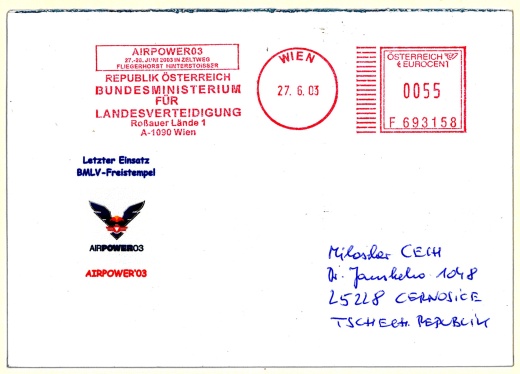 AIRPOWER03
27.-28. JUNI 2003 IN ZELTWEG
FLIEGERHORST HINTERSTOISSER
REPUBLIK ÖSTERREICH
BUNDESMINISTERIUM
FÜR
LANDESVERTEIDIGUNG
Roßauer Lände 1
A-1090 Wien
WIEN
27. 6. 03
ÖSTERREICH
€ EUROCENT
0055
F 693158
Letzter Einsatz
BMLV-Freistempel
AIRPOWER03
AIRPOWER'03
Miloslav CECH
Dr. 1048
25228 CERNOSICE
TSCHECH. REPUBLIK